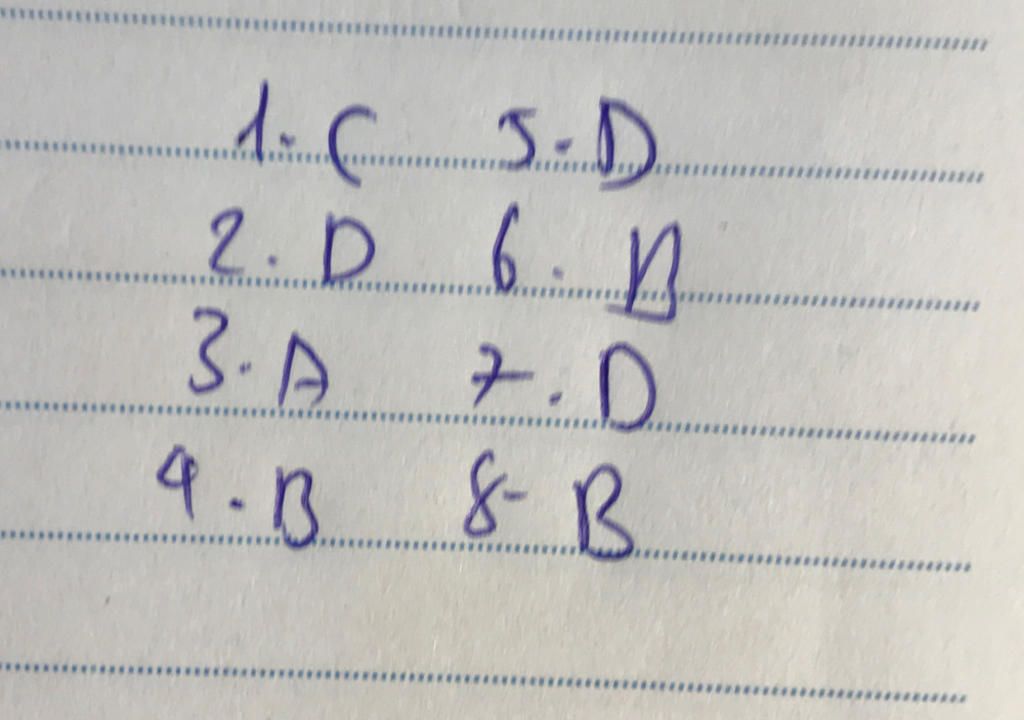 1. C 5. D
2. D 6. B
3. A 7. D
4. B 8- B